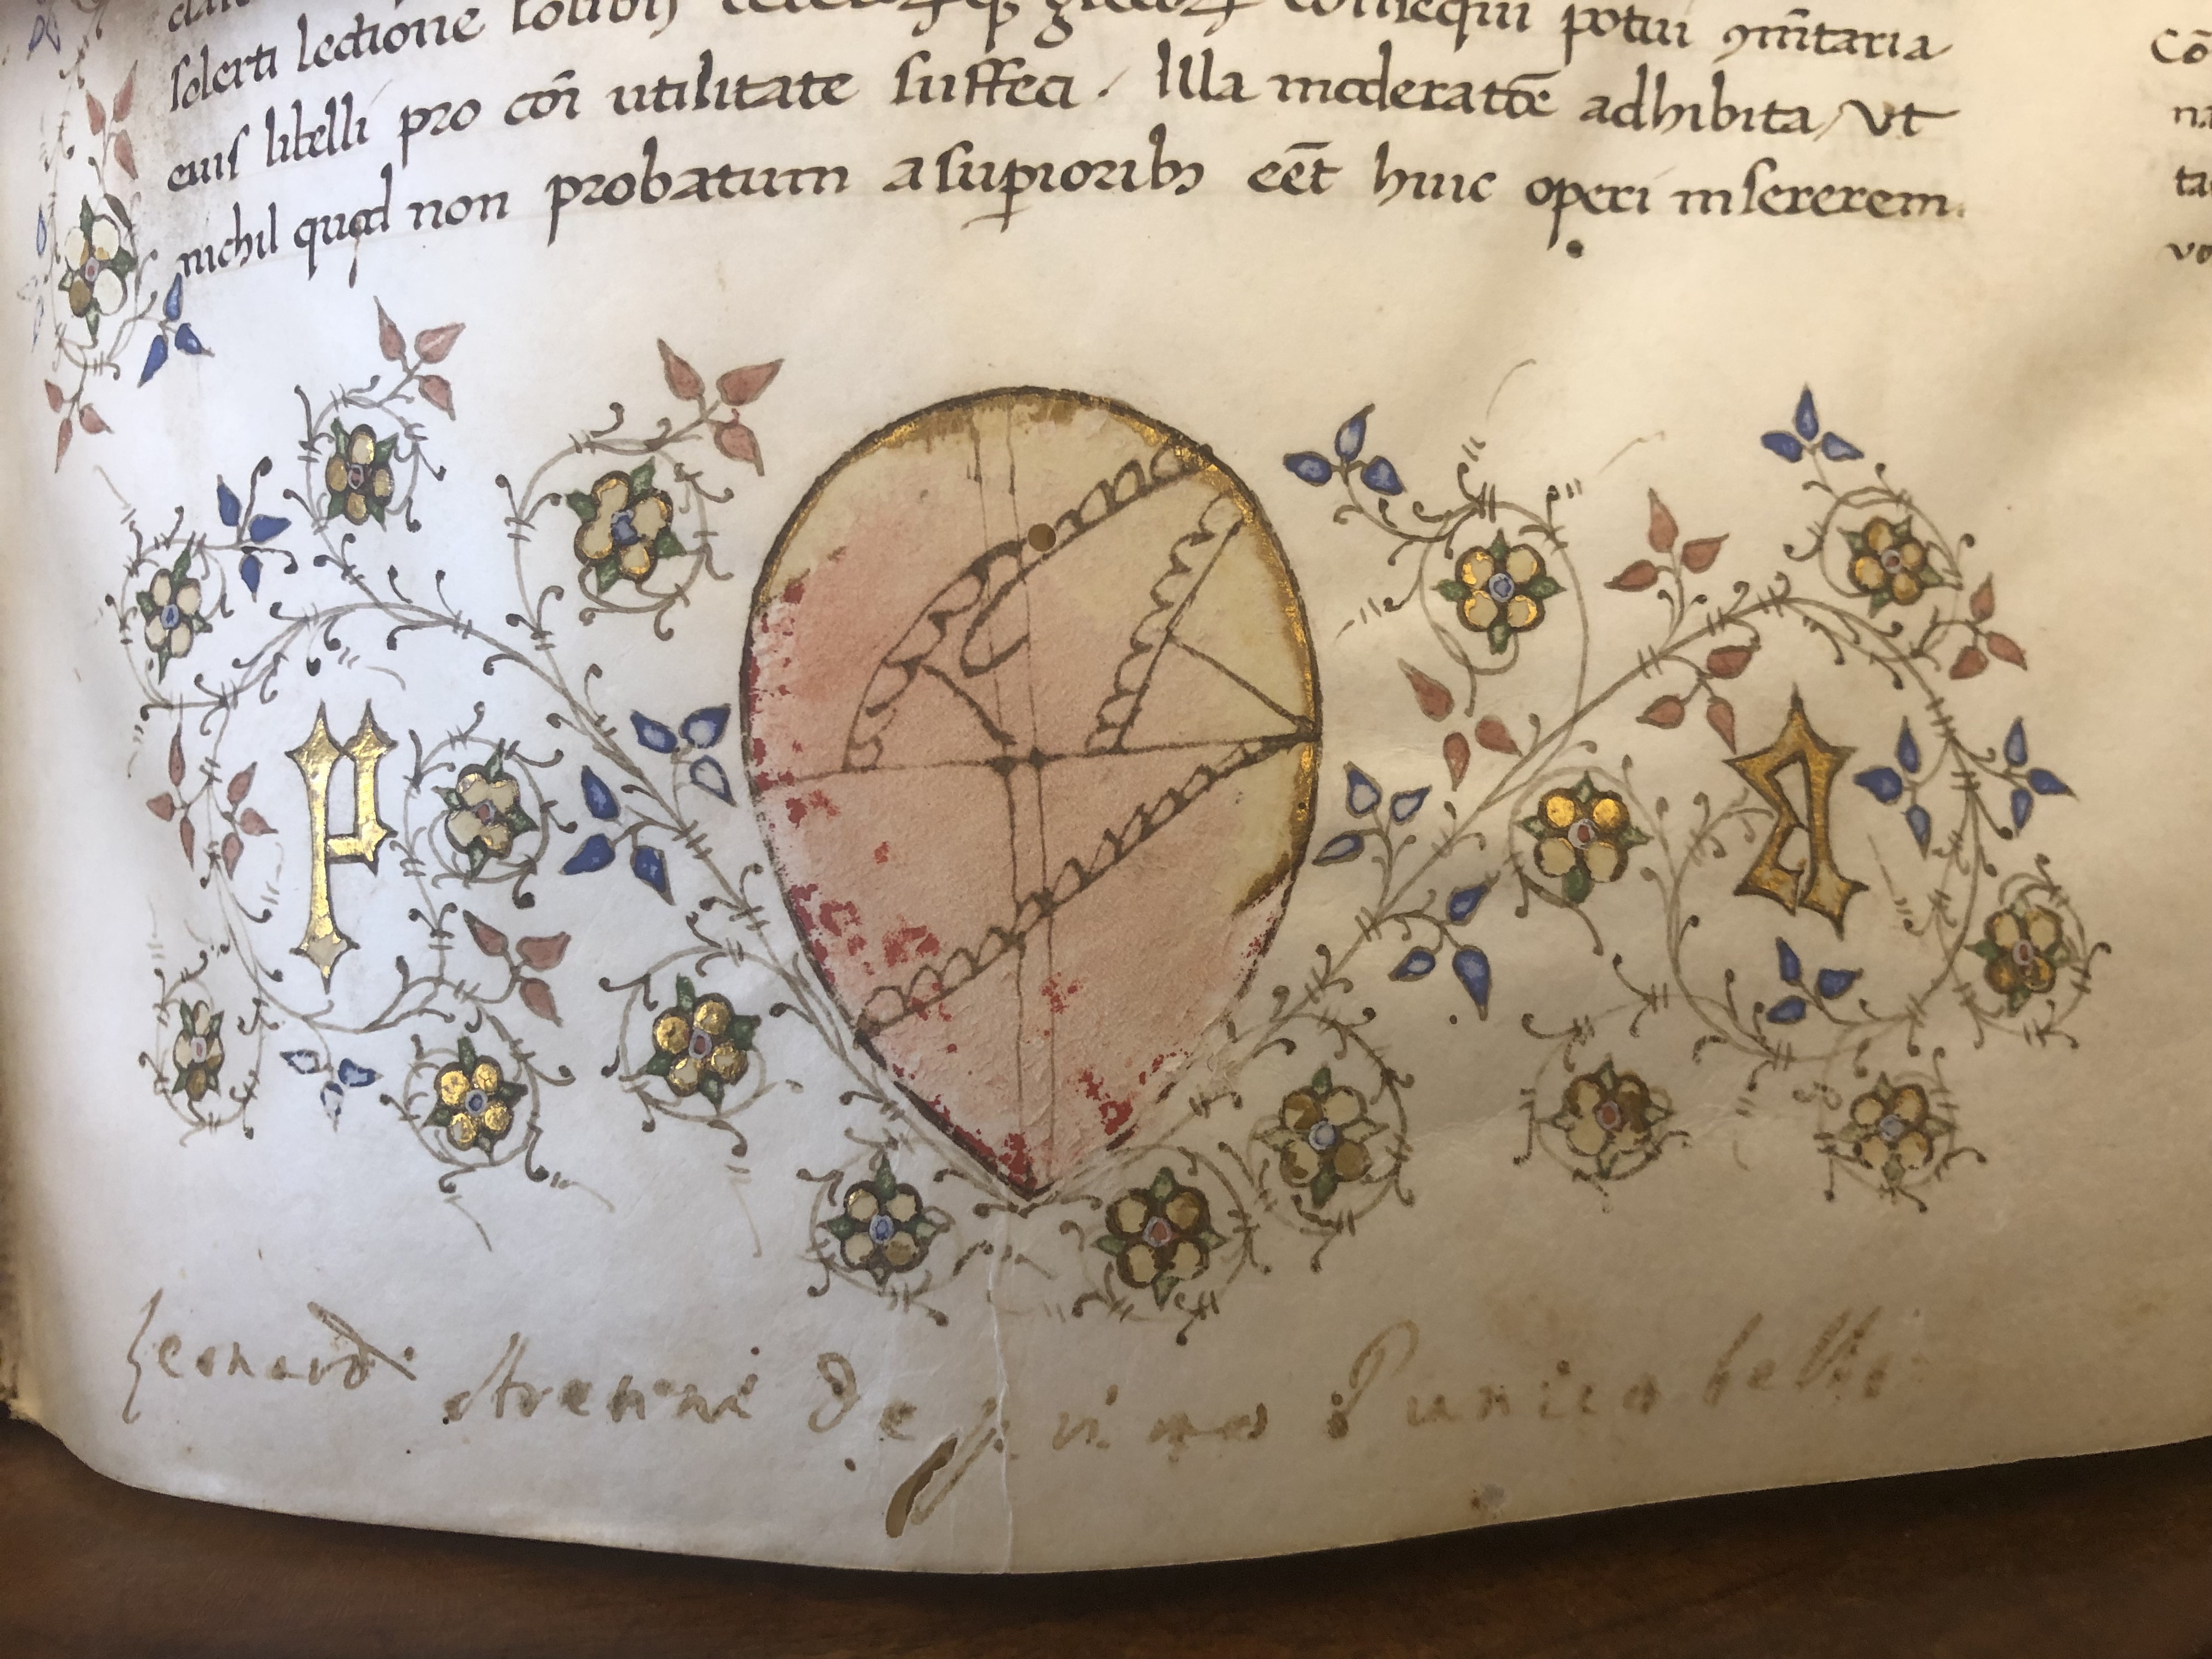 solerti lectione consequi potui ꝯm̄taria
eiuſ libelli pro cōi utilitate ſuffeci. Illa moderatōe adhibita, Vt
nichil quod non probatum a ſuꝑioribꝫ eēt huic operi inſererem.
P A
Leonardi Aretini De primo Punico bello
Cō
na
ta
vo